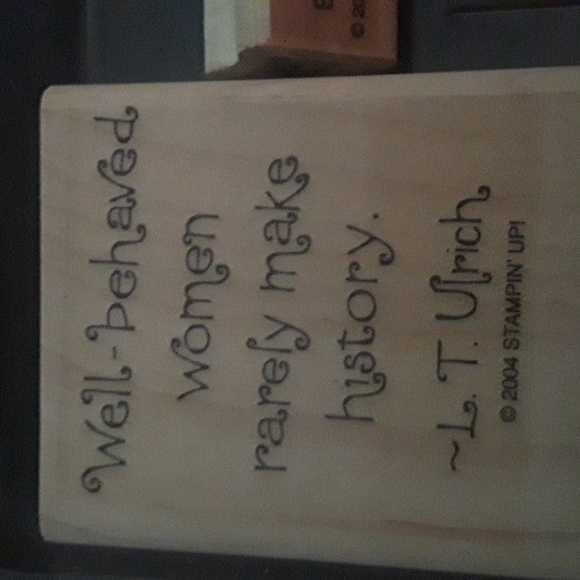 Well-behaved
women
rarely make
history.
~L. T. Ulrich
© 2004 STAMPIN' UP!